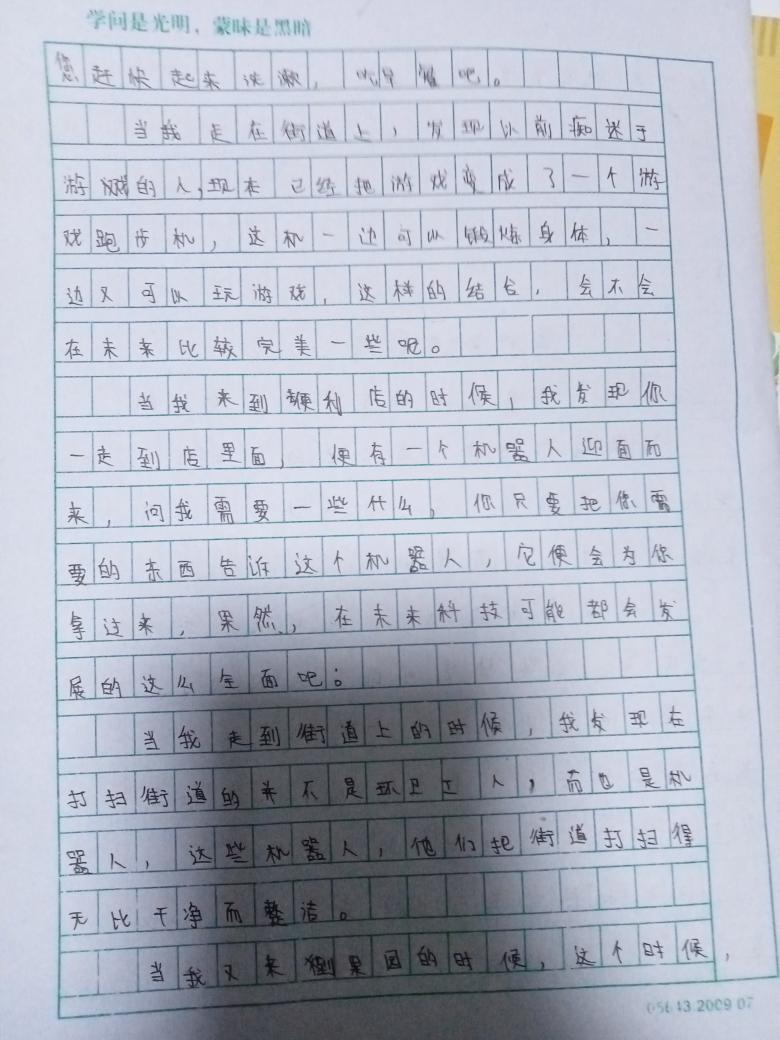 学问是光明，蒙昧是黑暗
您赶快起来洗漱，吃早饭吧。
当我走在街道上，发现以前痴迷于
游戏的人，现在已经把游戏变成了一个游
戏跑步机，这机一边可以锻炼身体，一
边又可以玩游戏，这样的结合，会不会
在未来比较完美一些呢。
当我来到便利店的时候，我发现你
一走到店里面，便有一个机器人迎面而
来，问我需要一些什么，你只要把你需
要的东西告诉这个机器人，它便会为你
拿过来，果然，在未来科技可能都会发
展的这么全面吧；
当我走到街道上的时候，我发现在
打扫街道的并不是环卫工人，而也是机
器人，这些机器人，他们把街道打扫得
无比干净而整洁。
当我又来到果园的时候，这个时候，
05643.2009.07